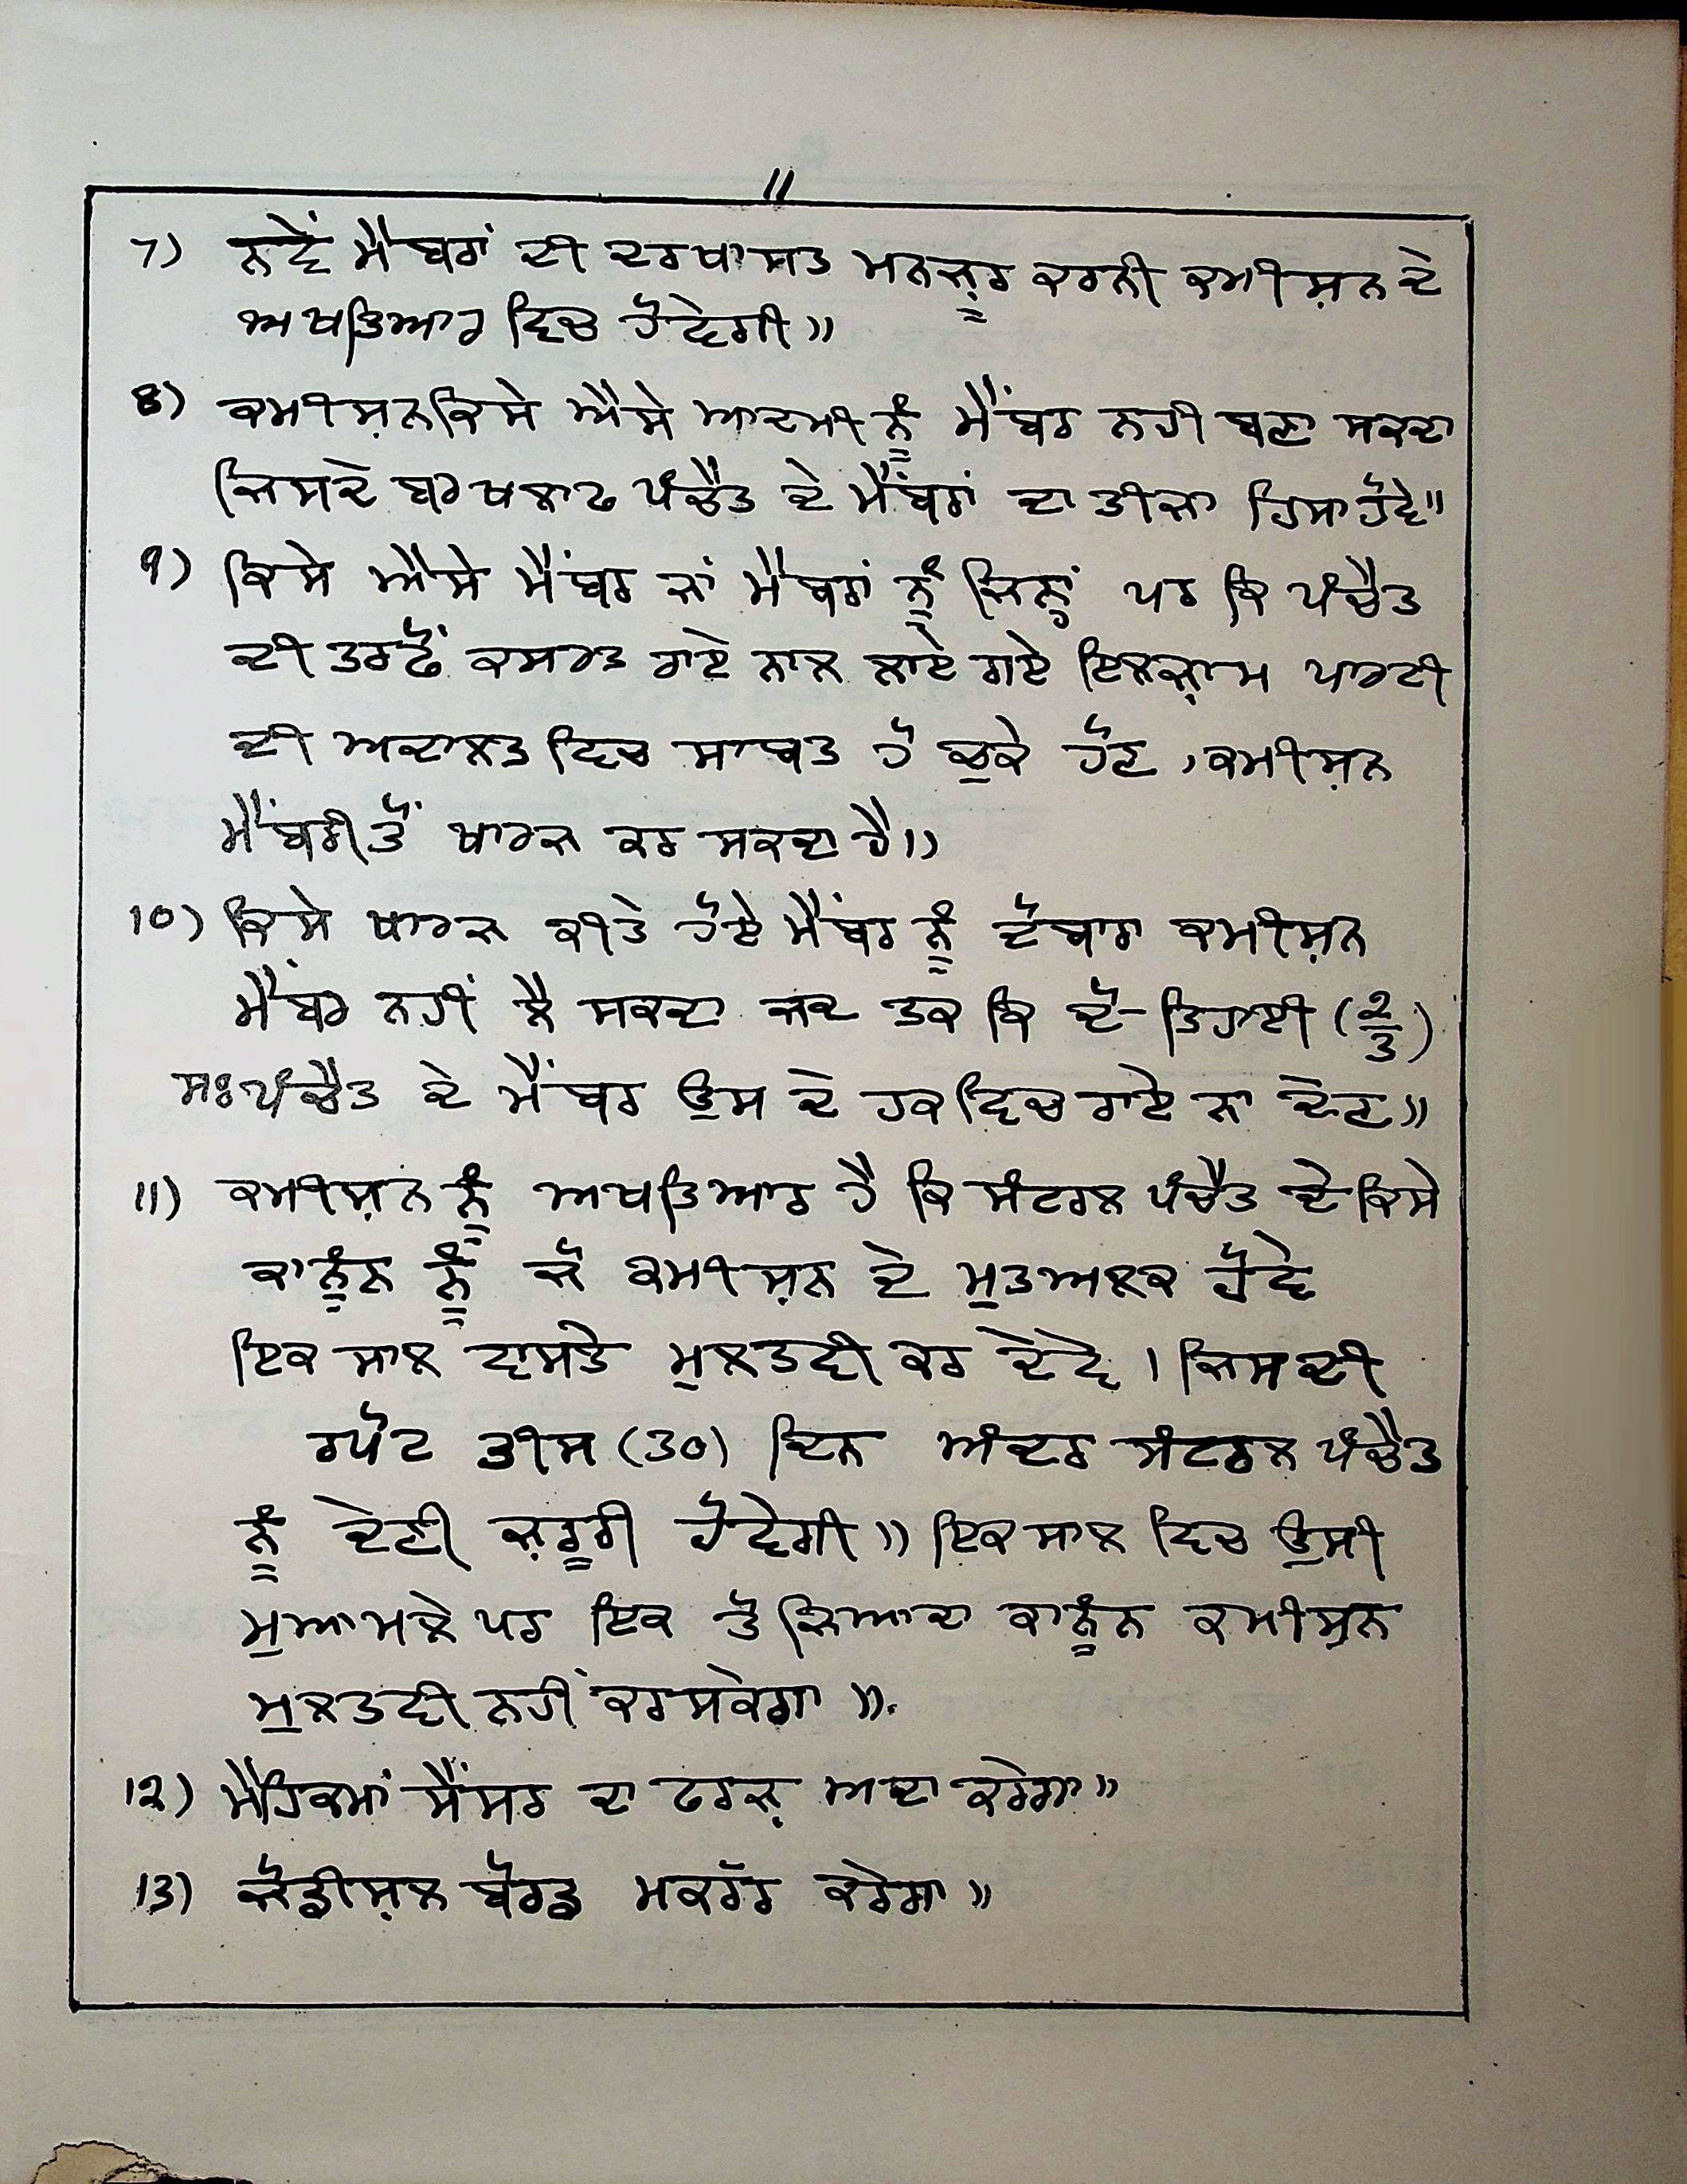 11
7) ਨਵੇਂ ਮੈਂਬਰਾਂ ਦੀ ਦਰਖਾਸਤ ਮਨਜ਼ੂਰ ਕਰਨੀ ਕਮੀਸ਼ਨ ਦੇ
ਅਖਤਿਆਰ ਵਿਚ ਹੋਵੇਗੀ॥
8) ਕਮੀਸ਼ਨ ਕਿਸੇ ਐਸੇ ਆਦਮੀ ਨੂੰ ਮੈਂਬਰ ਨਹੀ ਬਣਾ ਸਕਦਾ
ਜਿਸਦੇ ਬਰਖਲਾਫ ਪੰਚੈਤ ਦੇ ਮੈਂਬਰਾਂ ਦਾ ਤੀਜਾ ਹਿਸਾ ਹੋਵੇ॥
9) ਕਿਸੇ ਐਸੇ ਮੈਂਬਰ ਜਾਂ ਮੈਂਬਰਾਂ ਨੂੰ ਜਿਨ੍ਹਾਂ ਪਰ ਕਿ ਪੰਚੈਤ
ਦੀ ਤਰਫੋਂ ਕਸਰਤ ਰਾਏ ਨਾਲ ਲਾਏ ਗਏ ਇਲਜ਼ਾਮ ਪਾਰਟੀ
ਦੀ ਅਦਾਲਤ ਵਿਚ ਸਾਬਤ ਹੋ ਚੁਕੇ ਹੋਣ, ਕਮੀਸ਼ਨ
ਮੈਂਬਰੀ ਤੋਂ ਖਾਰਜ ਕਰ ਸਕਦਾ ਹੈ॥
10) ਕਿਸੇ ਖਾਰਜ ਕੀਤੇ ਹੋਏ ਮੈਂਬਰ ਨੂੰ ਦੋਬਾਰਾ ਕਮੀਸ਼ਨ
ਮੈਂਬਰ ਨਹੀਂ ਲੈ ਸਕਦਾ ਜਦ ਤਕ ਕਿ ਦੋ-ਤਿਹਾਈ (2/3)
ਸਃ ਪੰਚੈਤ ਦੇ ਮੈਂਬਰ ਉਸ ਦੇ ਹਕ ਵਿਚ ਰਾਏ ਨਾ ਦੇਣ॥
11) ਕਮੀਸ਼ਨ ਨੂੰ ਅਖਤਿਆਰ ਹੈ ਕਿ ਸੰਟਰਲ ਪੰਚੈਤ ਦੇ ਕਿਸੇ
ਕਾਨੂੰਨ ਨੂੰ ਜੋ ਕਮੀਸ਼ਨ ਦੇ ਮੁਤਅਲਕ ਹੋਵੇ
ਇਕ ਸਾਲ ਵਾਸਤੇ ਮੁਲਤਵੀ ਕਰ ਦੇਵੇ। ਜਿਸਦੀ
ਰਪੋਟ ਤੀਸ (30) ਦਿਨ ਅੰਦਰ ਸੰਟਰਲ ਪੰਚੈਤ
ਨੂੰ ਦੇਣੀ ਜ਼ਰੂਰੀ ਹੋਵੇਗੀ॥ ਇਕ ਸਾਲ ਵਿਚ ਉਸੀ
ਮੁਆਮਲੇ ਪਰ ਇਕ ਤੋ ਜਿਆਦਾ ਕਾਨੂੰਨ ਕਮੀਸ਼ਨ
ਮੁਲਤਵੀ ਨਹੀਂ ਕਰ ਸਕੇਗਾ॥.
12) ਮੈਹਿਕਮਾਂ ਸੈਂਸਰ ਦਾ ਫਰਜ਼ ਅਦਾ ਕਰੇਗਾ॥
13) ਜੋਡੀਸ਼ਲ ਬੋਰਡ ਮਕਰੱਰ ਕਰੇਗਾ॥